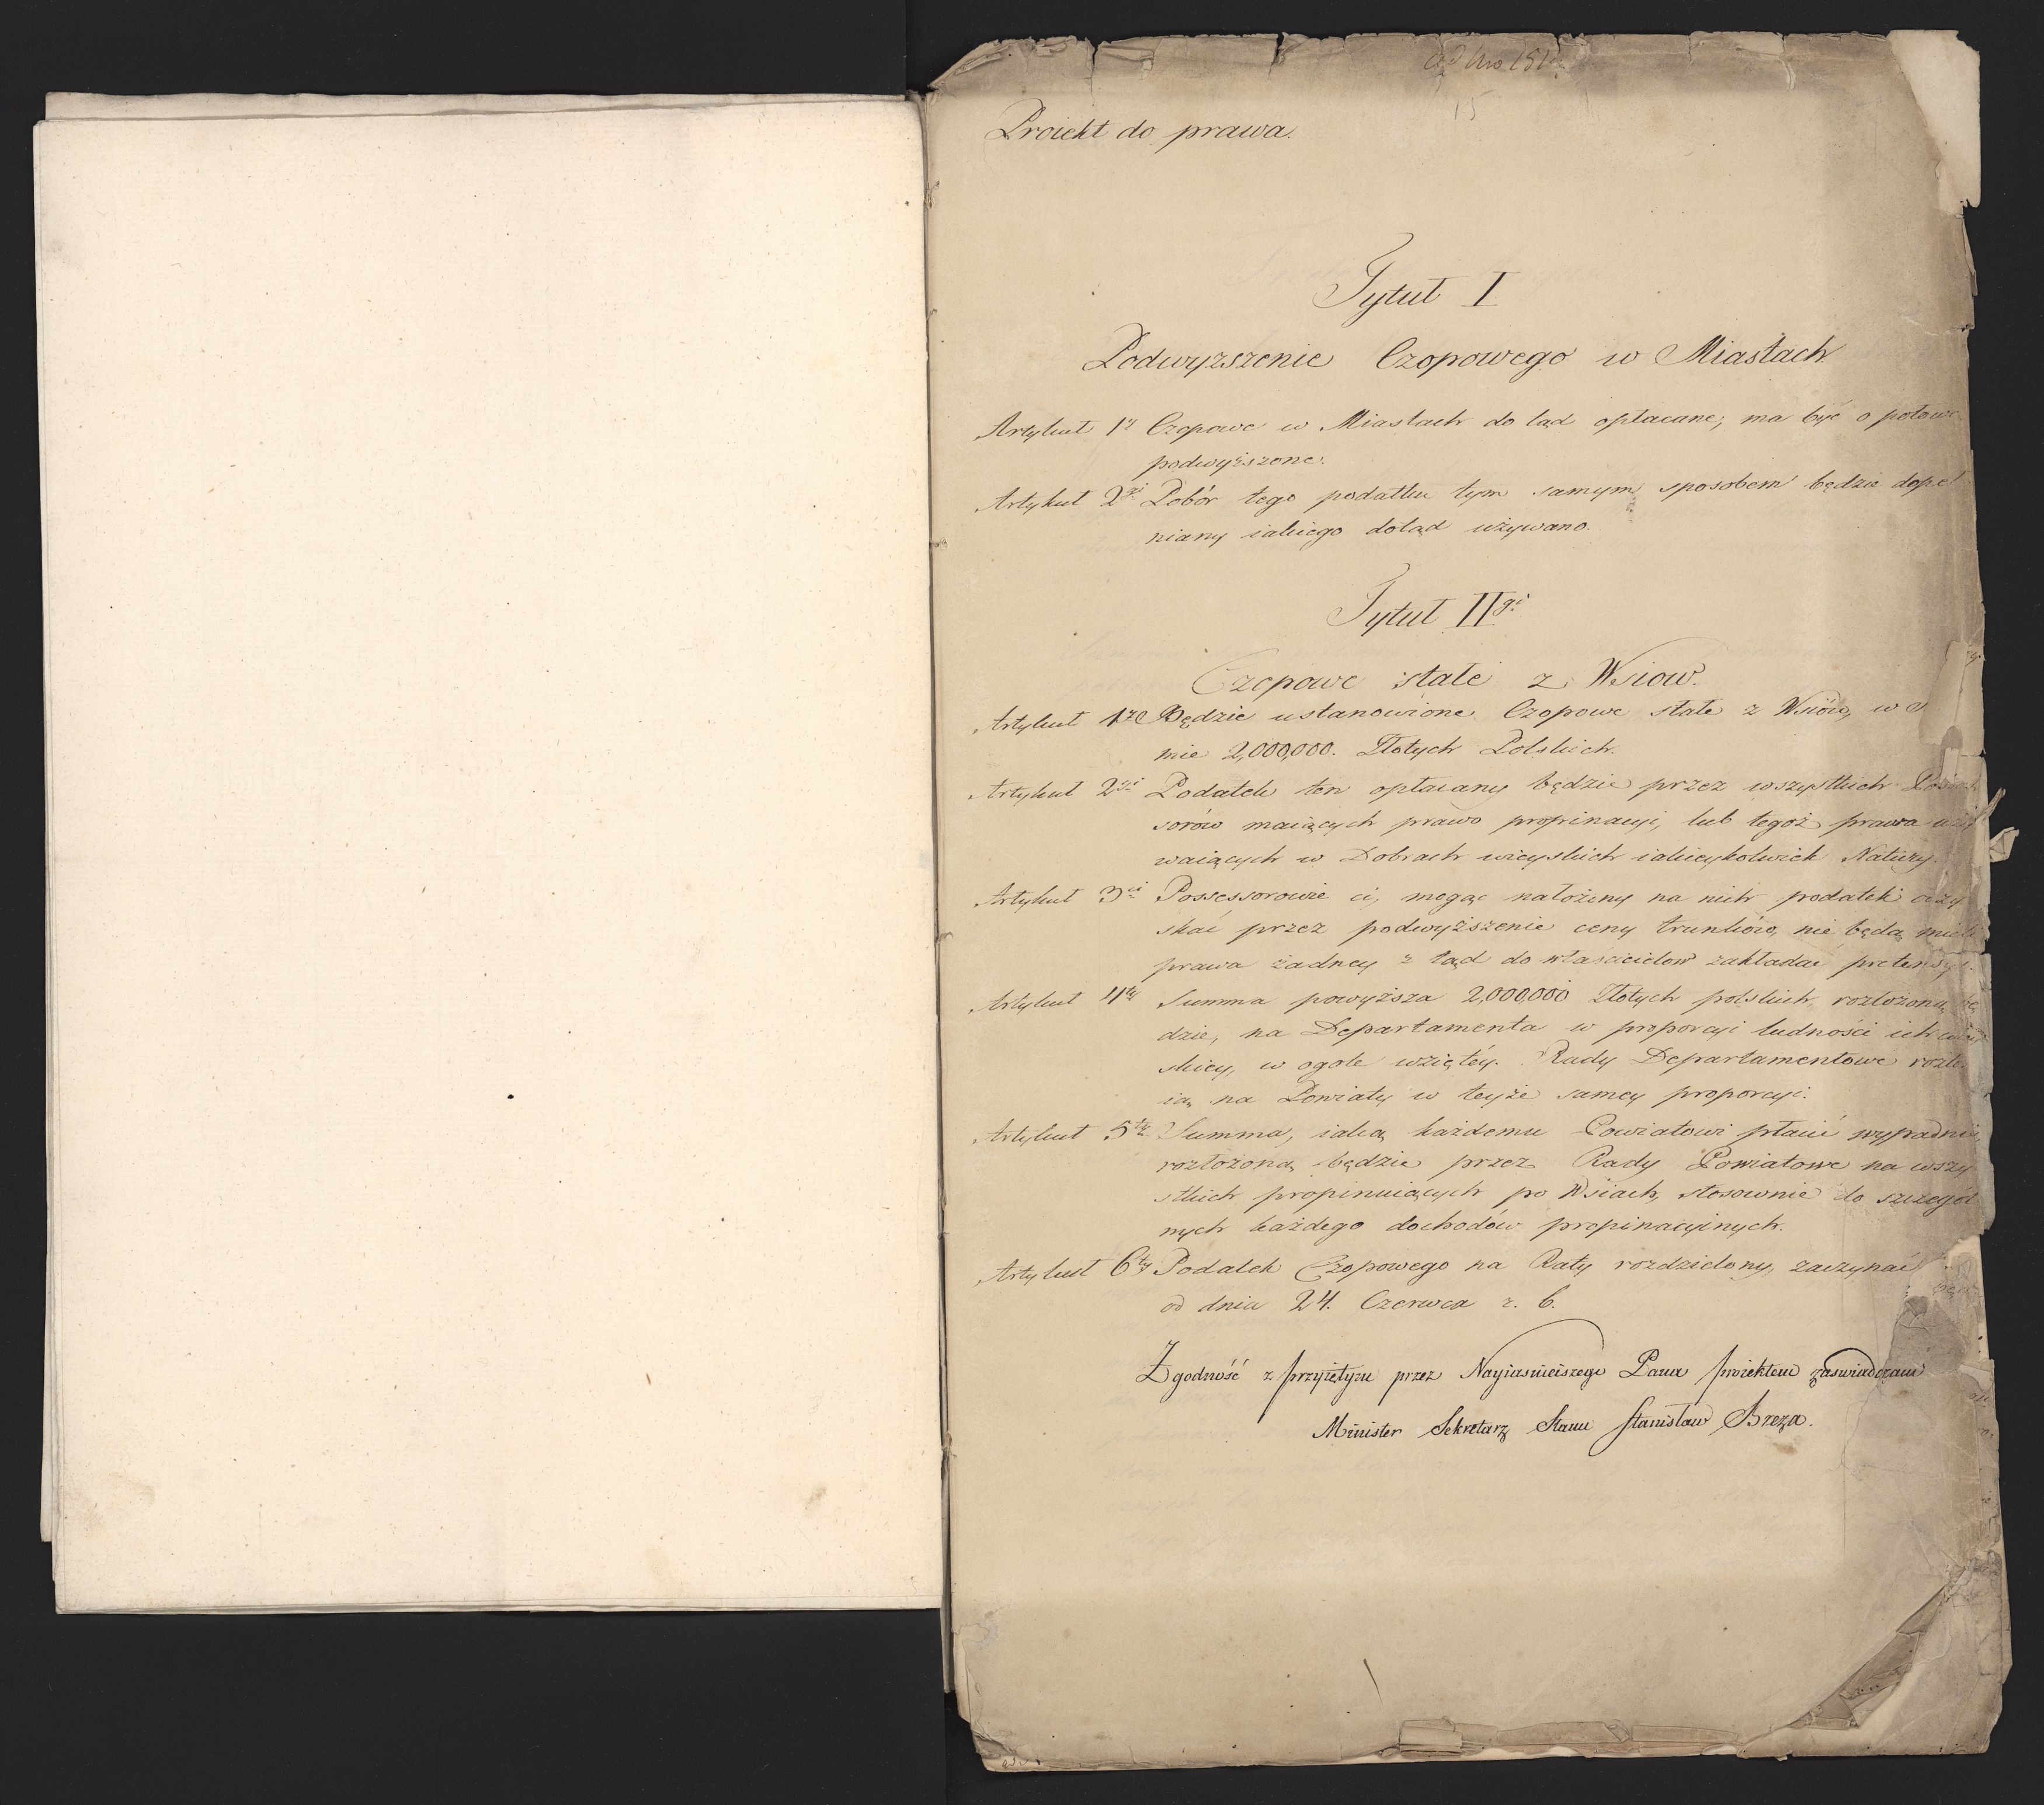 ad Nro 151
15
Proiekt do prawa.
Tytuł I
Podwyzszenie Czopowego w Miastach
Artykuł 1y Czopowe w Miastach do tąd opłacane; ma być o połowę
podwyższone.
Artykuł 2gi Pobór tego podatku tym samym sposobem będzie dopeł
niany iakiego dotąd używano.
Tytuł IIgi
Czopowe stałe z Wsiow.
Artykuł 1y Będzie ustanowione Czopowe stałe z Wsiów, w
mie 2,000,000. Złotych Polskich.
Artykuł 2gi Podatek ten opłacany będzie przez wszystkich
sorów maiących prawo propinacyi, lub tegoż prawa uży
waiących w Dobrach wieyskich iakieykolwiek Natury.
Artykuł 3ci Possessorowie ci, mogąc nałożony na nich podatek odzy
skać przez podwyższenie ceny trunków, nie będą mieli
prawa żadney z tąd do właścicielow zakładać pretensyi.
Artykuł 4ty Summa powyższa 2,000,000 Złotych polskich, rozłożoną bę
dzie, na Departamenta w proporcyi ludności ich
skiey, w ogole wziętéy. Rady Departamentowe rozło
ią na Powiaty w teyże samey proporcyi.
Artykuł 5ty Summa, iaką każdemu Powiatowi płacić wypadnie
rozłożoną będzie przez Rady Powiatowe na wszy
stkich propinuiących po Wsiach, stosownie do szczegól
nych każdego dochodów propinacyinych.
Artykuł 6ty Podatek Czopowego na Raty rozdzielony, zaczynać
od dnia 24. Czerwca r. b.
Zgodność z przyiętym przez Nayiaśnieiszego Pana proiektem zaswiadczam
Minister Sekretarz Stanu Stanisław Breza.